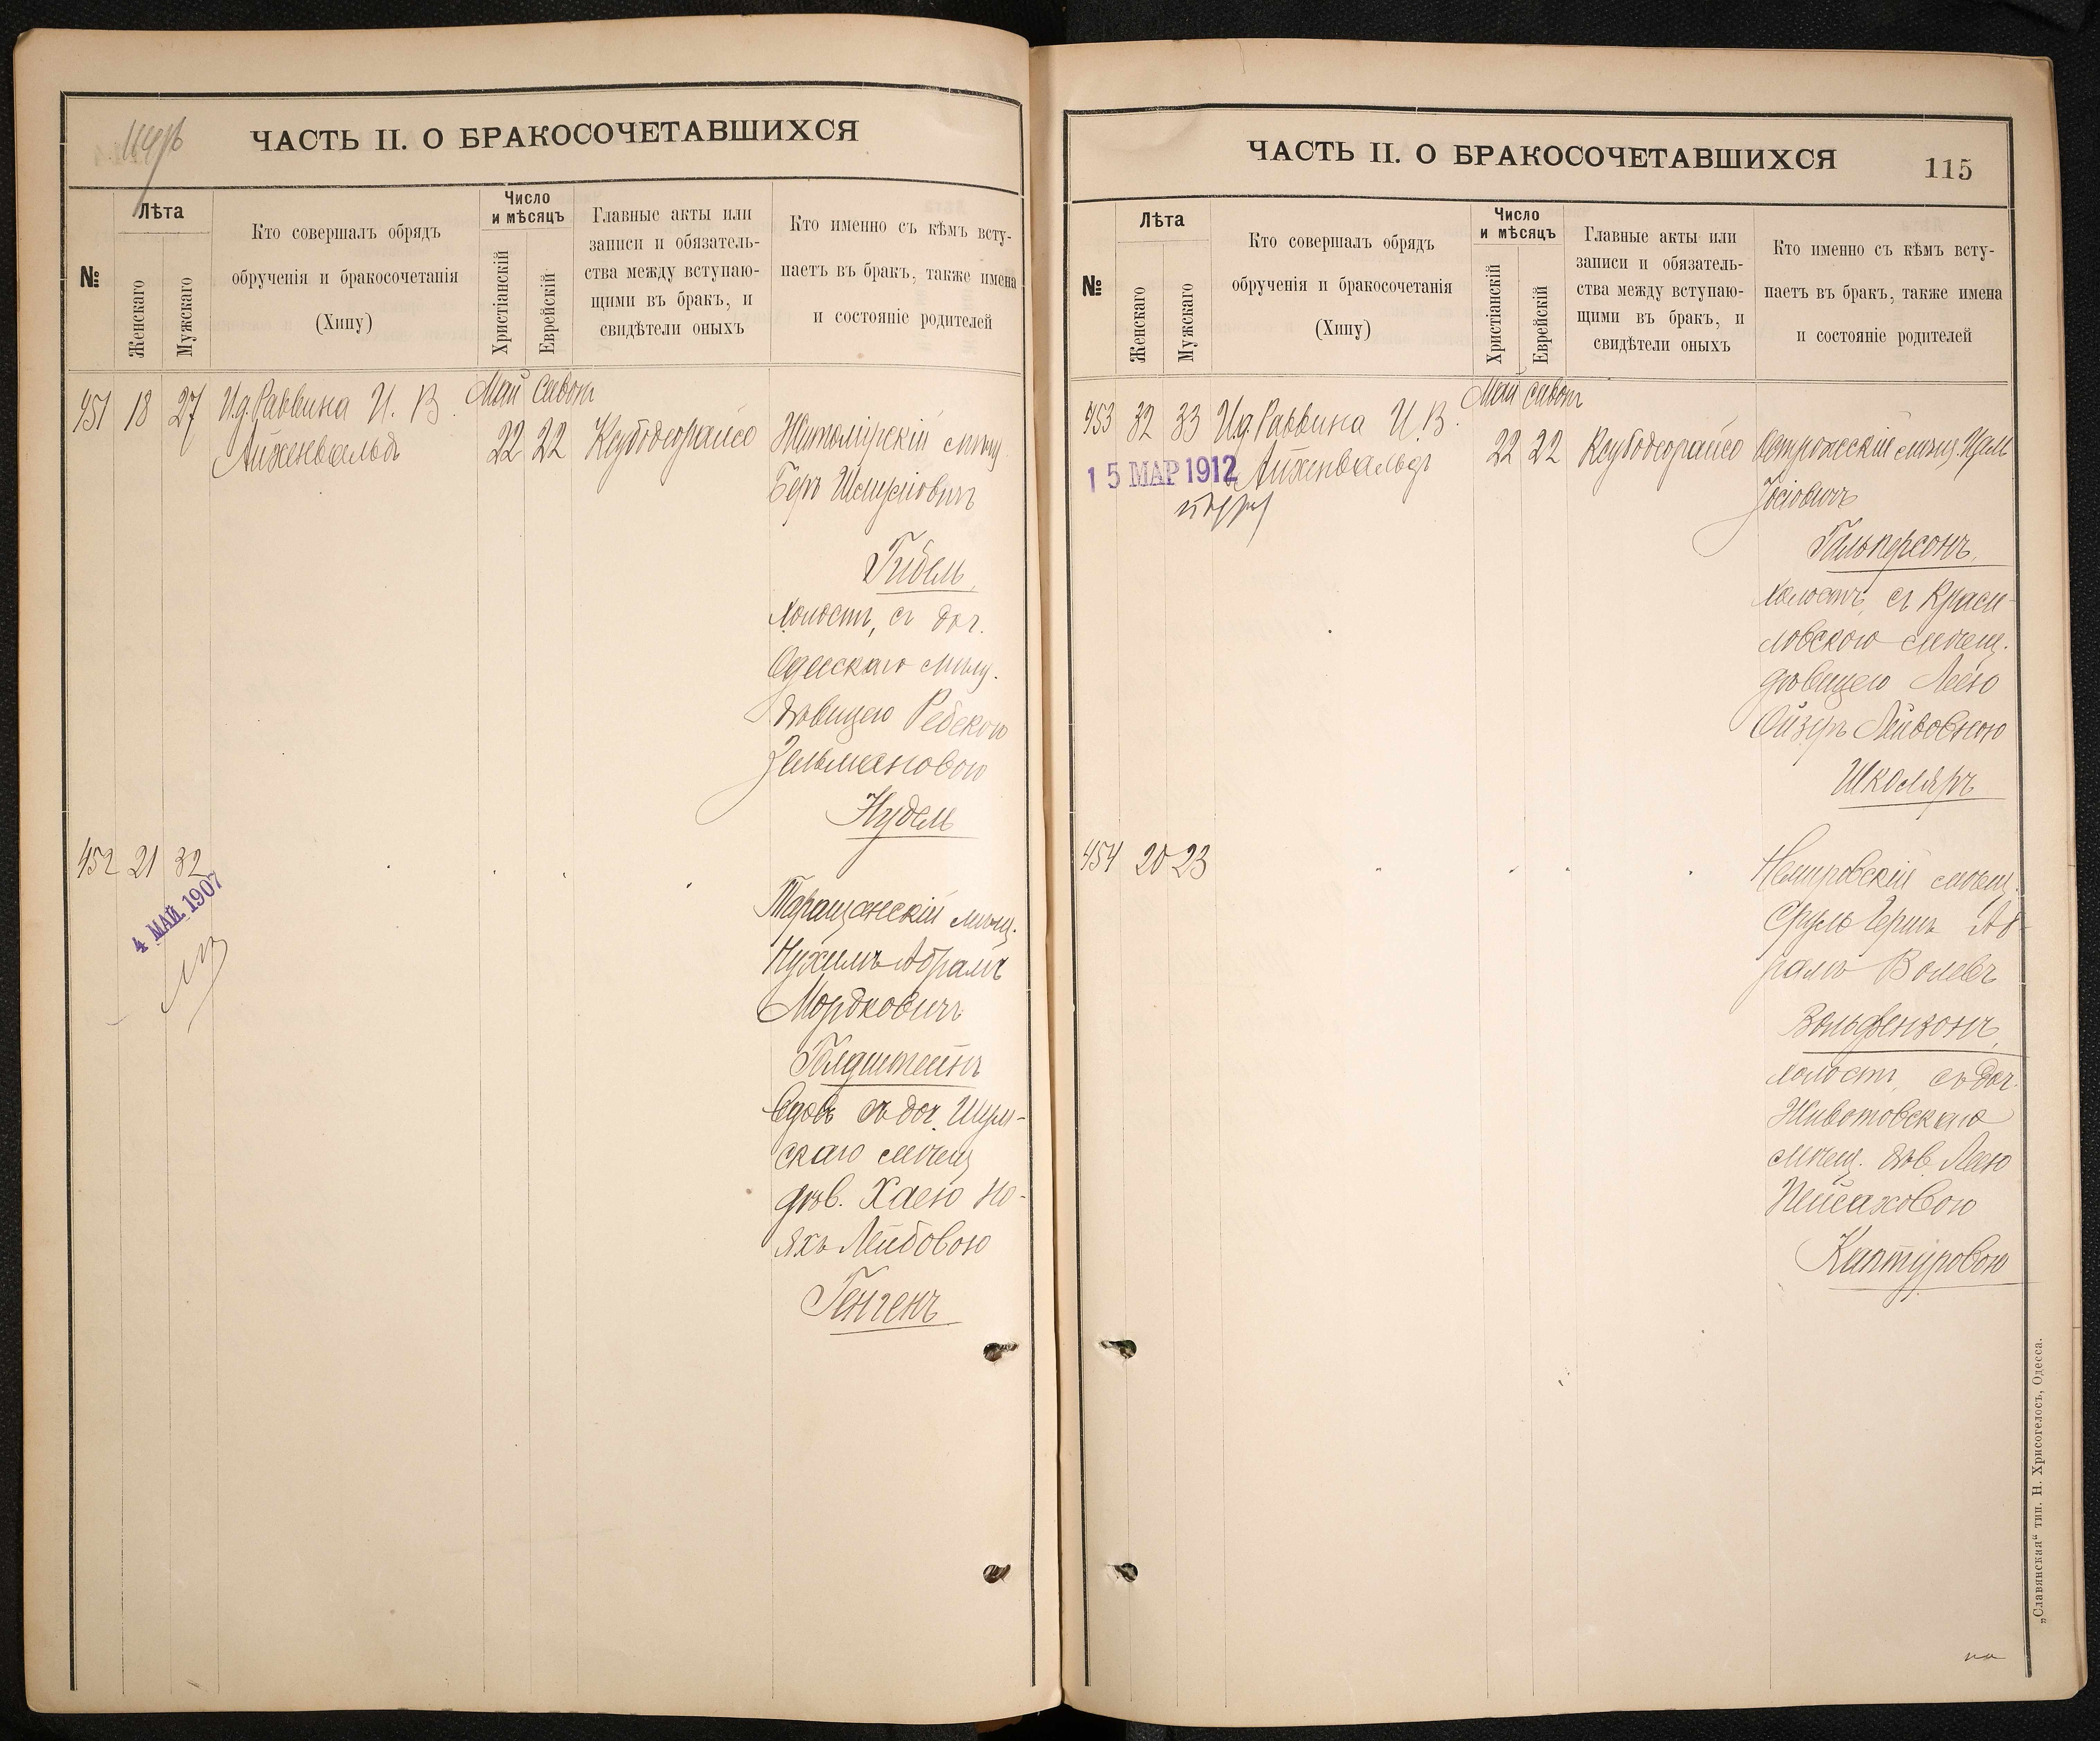 ЧАСТЬ II. О БРАКОСОЧЕТАВШИХСЯ
№
Лѣта
Женскаго
Мужскаго
Кто совершалъ обрядъ
обрученія и бракосочетанія
(Хипу)
Число
и мѣсяцъ
Христіанскій
Еврейскій
Главные акты или
записи и обязатель-
ства между вступаю-
щими въ бракъ, и
свидѣтели оныхъ
Кто именно съ кѣмъ всту-
паетъ въ бракъ, также имена
и состояніе родителей
451 18 27 И.д. Раввина И. В.
Айженвальдъ
Май Сивонъ
22 22
Житомірскій мѣщ.
Беръ Шмулювичъ
Гибель,
холостъ, съ доч.
Одесскаго мѣщ.
дѣвицею Ребекою
Зельмановою
Нудель
452 21 32
4 МАЙ 1907
Таращанскій мѣщ.
Нухимъ Абрамъ
Мордковичъ
Голдштейнъ
вдовъ съ доч. Шум-
скаго мѣщ
дѣв. Хаею Но-
яхъ Лейбовою
Генгенъ
ЧАСТЬ II. О БРАКОСОЧЕТАВШИХСЯ
115
№
Лѣта
Женскаго
Мужскаго
Кто совершалъ обрядъ
обрученія и бракосочетанія
(Хипу)
Число
и мѣсяцъ
Христіанскій
Еврейскій
Главные акты или
записи и обязатель-
ства между вступаю-
щими въ бракъ, и
свидѣтели оныхъ
Кто именно съ кѣмъ всту-
паетъ въ бракъ, также имена
и состояніе родителей
453 32 33 И.д. Раввина И. В.
Айженвальдъ
15 МАР 1912
Май Сивонъ
22 22
Острожскій мѣщ.
Іосіовичъ
Гальперсонъ,
холостъ, съ Краси-
ловскою мѣщ.
дѣвицею Леею
Ойзеръ Лейбовною
Школяръ
454 20 23
Немировскій мѣщ.
Сруль Гершъ Аб-
рамъ Волевъ
Вольфензонъ,
холостъ, съ доч.
Животовскаго
мѣщ. дѣв. Леею
Пейсаховою
Каптуровою
„Славянская“ тип. Н. Хрисогелосъ, Одесса.